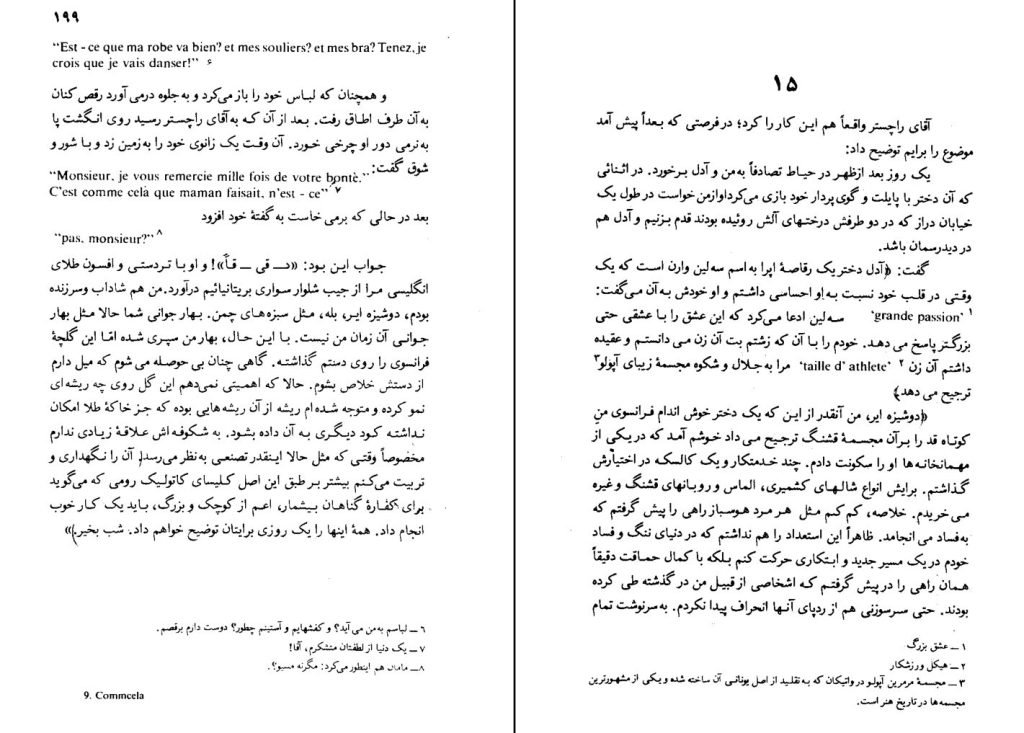 ۱۹۹
"Est - ce que ma robe va bien? et mes souliers? et mes bra? Tenez, je
crois que je vais danser!" ۶
و همچنان که لباس خود را باز می‌کرد و به جلوه درمی آورد رقص کنان
به آن طرف اطاق رفت. بعد از آن که به آقای راچستر رسید روی انگشت پا
به نرمی دور او چرخی خورد. آن وقت یک زانوی خود را به زمین زد و با شور و
شوق گفت:
"Monsieur, je vous remercie mille fois de votre bontè."
C'est comme celà que maman faisait, n'est - ce" ۷
بعد در حالی که برمی خاست به گفتهٔ خود افزود
"pas, monsieur?" ۸
جواب این بود: «دـ قی ـ قاً»! و او با تردستی و افسون طلای
انگلیسی مرا از جیب شلوار سواری بریتانیائیم درآورد. من هم شاداب وسرزنده
بودم، دوشیزه ایر، بله، مثل سبزه‌های چمن. بهار جوانی شما حالا مثل بهار
جوانی آن زمان من نیست. با این حال، بهار من سپری شده امّا این گلچهٔ
فرانسوی را روی دستم گذاشته. گاهی چنان بی حوصله می شوم که میل دارم
از دستش خلاص بشوم. حالا که اهمیتی نمی‌دهم این گل روی چه ریشه‌ای
نمو کرده و متوجه شده‌ام ریشه از آن ریشه‌هایی بوده که جز خاکهٔ طلا امکان
نداشته کود دیگری به آن داده بشود. به شکوفه‌اش علاقهٔ زیادی ندارم
مخصوصاً وقتی که مثل حالا اینقدر تصنعی به نظر می‌رسد. آن را نگهداری و
تربیت می‌کنم بیشتر بر طبق این اصل کلیسای کاتولیک رومی که می‌گوید
برای کفارهٔ گناهان بیشمار، اعم از کوچک و بزرگ، باید یک کار خوب
انجام داد. همهٔ اینها را یک روزی برایتان توضیح خواهم داد. شب بخیر.»
۶ ــ لباسم به من می آید؟ و کفشهایم و آستینم چطور؟ دوست دارم برقصم.
۷ ــ یک دنیا از لطفتان متشکرم، آقا!
۸ــ مامان هم اینطور می‌کرد: مگرنه مسیو؟.
9. Commcela
۱۵
آقای راچستر واقعاً هم این کار را کرد؛ در فرصتی که بعداً پیش آمد
موضوع را برایم توضیح داد:
یک روز بعد ازظهر در حیاط تصادفاً به من و آدل برخورد. در اثنائی
که آن دختر با پایلت و گوی پردار خود بازی می‌کرد او از من خواست در طول یک
خیابان دراز که در دو طرفش درختهای آلش روئیده بودند قدم بزنیم و آدل هم
در دیدرسمان باشد.
گفت: «آدل دختر یک رقاصهٔ اپرا به اسم سه لین وارن است که یک
وقتی در قلب خود نسبت به او احساسی داشتم و او خودش به آن می‌گفت:
'grande passion' ۱ سه لین ادعا می‌کرد که این عشق را با عشقی حتی
بزرگتر پاسخ می دهد. خودم را با آن که زشتم بت آن زن می دانستم و عقیده
داشتم آن زن ۲ 'taille d' athlete' مرا به جلال و شکوه مجسمهٔ زیبای آپولو۳
ترجیح می دهد»
«دوشیزه ایر، من آنقدر از این که یک دختر خوش اندام فرانسوی منِ
کوتاه قد را بر آن مجسمهٔ قشنگ ترجیح می داد خوشم آمد که در یکی از
مهمانخانه‌ها او را سکونت دادم. چند خدمتکار و یک کالسکه در اختیارش
گذاشتم. برایش انواع شالهای کشمیری، الماس و روبانهای قشنگ و غیره
می خریدم. خلاصه، کم کم مثل هر مرد هوسباز راهی را پیش گرفتم که
به فساد می انجامد. ظاهراً این استعداد را هم نداشتم که در دنیای ننگ و فساد
خودم در یک مسیر جدید و ابتکاری حرکت کنم بلکه با کمال حماقت دقیقاً
همان راهی را در پیش گرفتم که اشخاصی از قبیل من در گذشته طی کرده
بودند. حتی سرسوزنی هم از ردپای آنها انحراف پیدا نکردم. به سرنوشت تمام
۱ ــ عشق بزرگ
۲ ــ هیکل ورزشکار
۳ ــ مجسمهٔ مرمرین آپولو در واتیکان که به تقلید از اصل یونانی آن ساخته شده و یکی از مشهورترین
مجسمه‌ها در تاریخ هنر است.